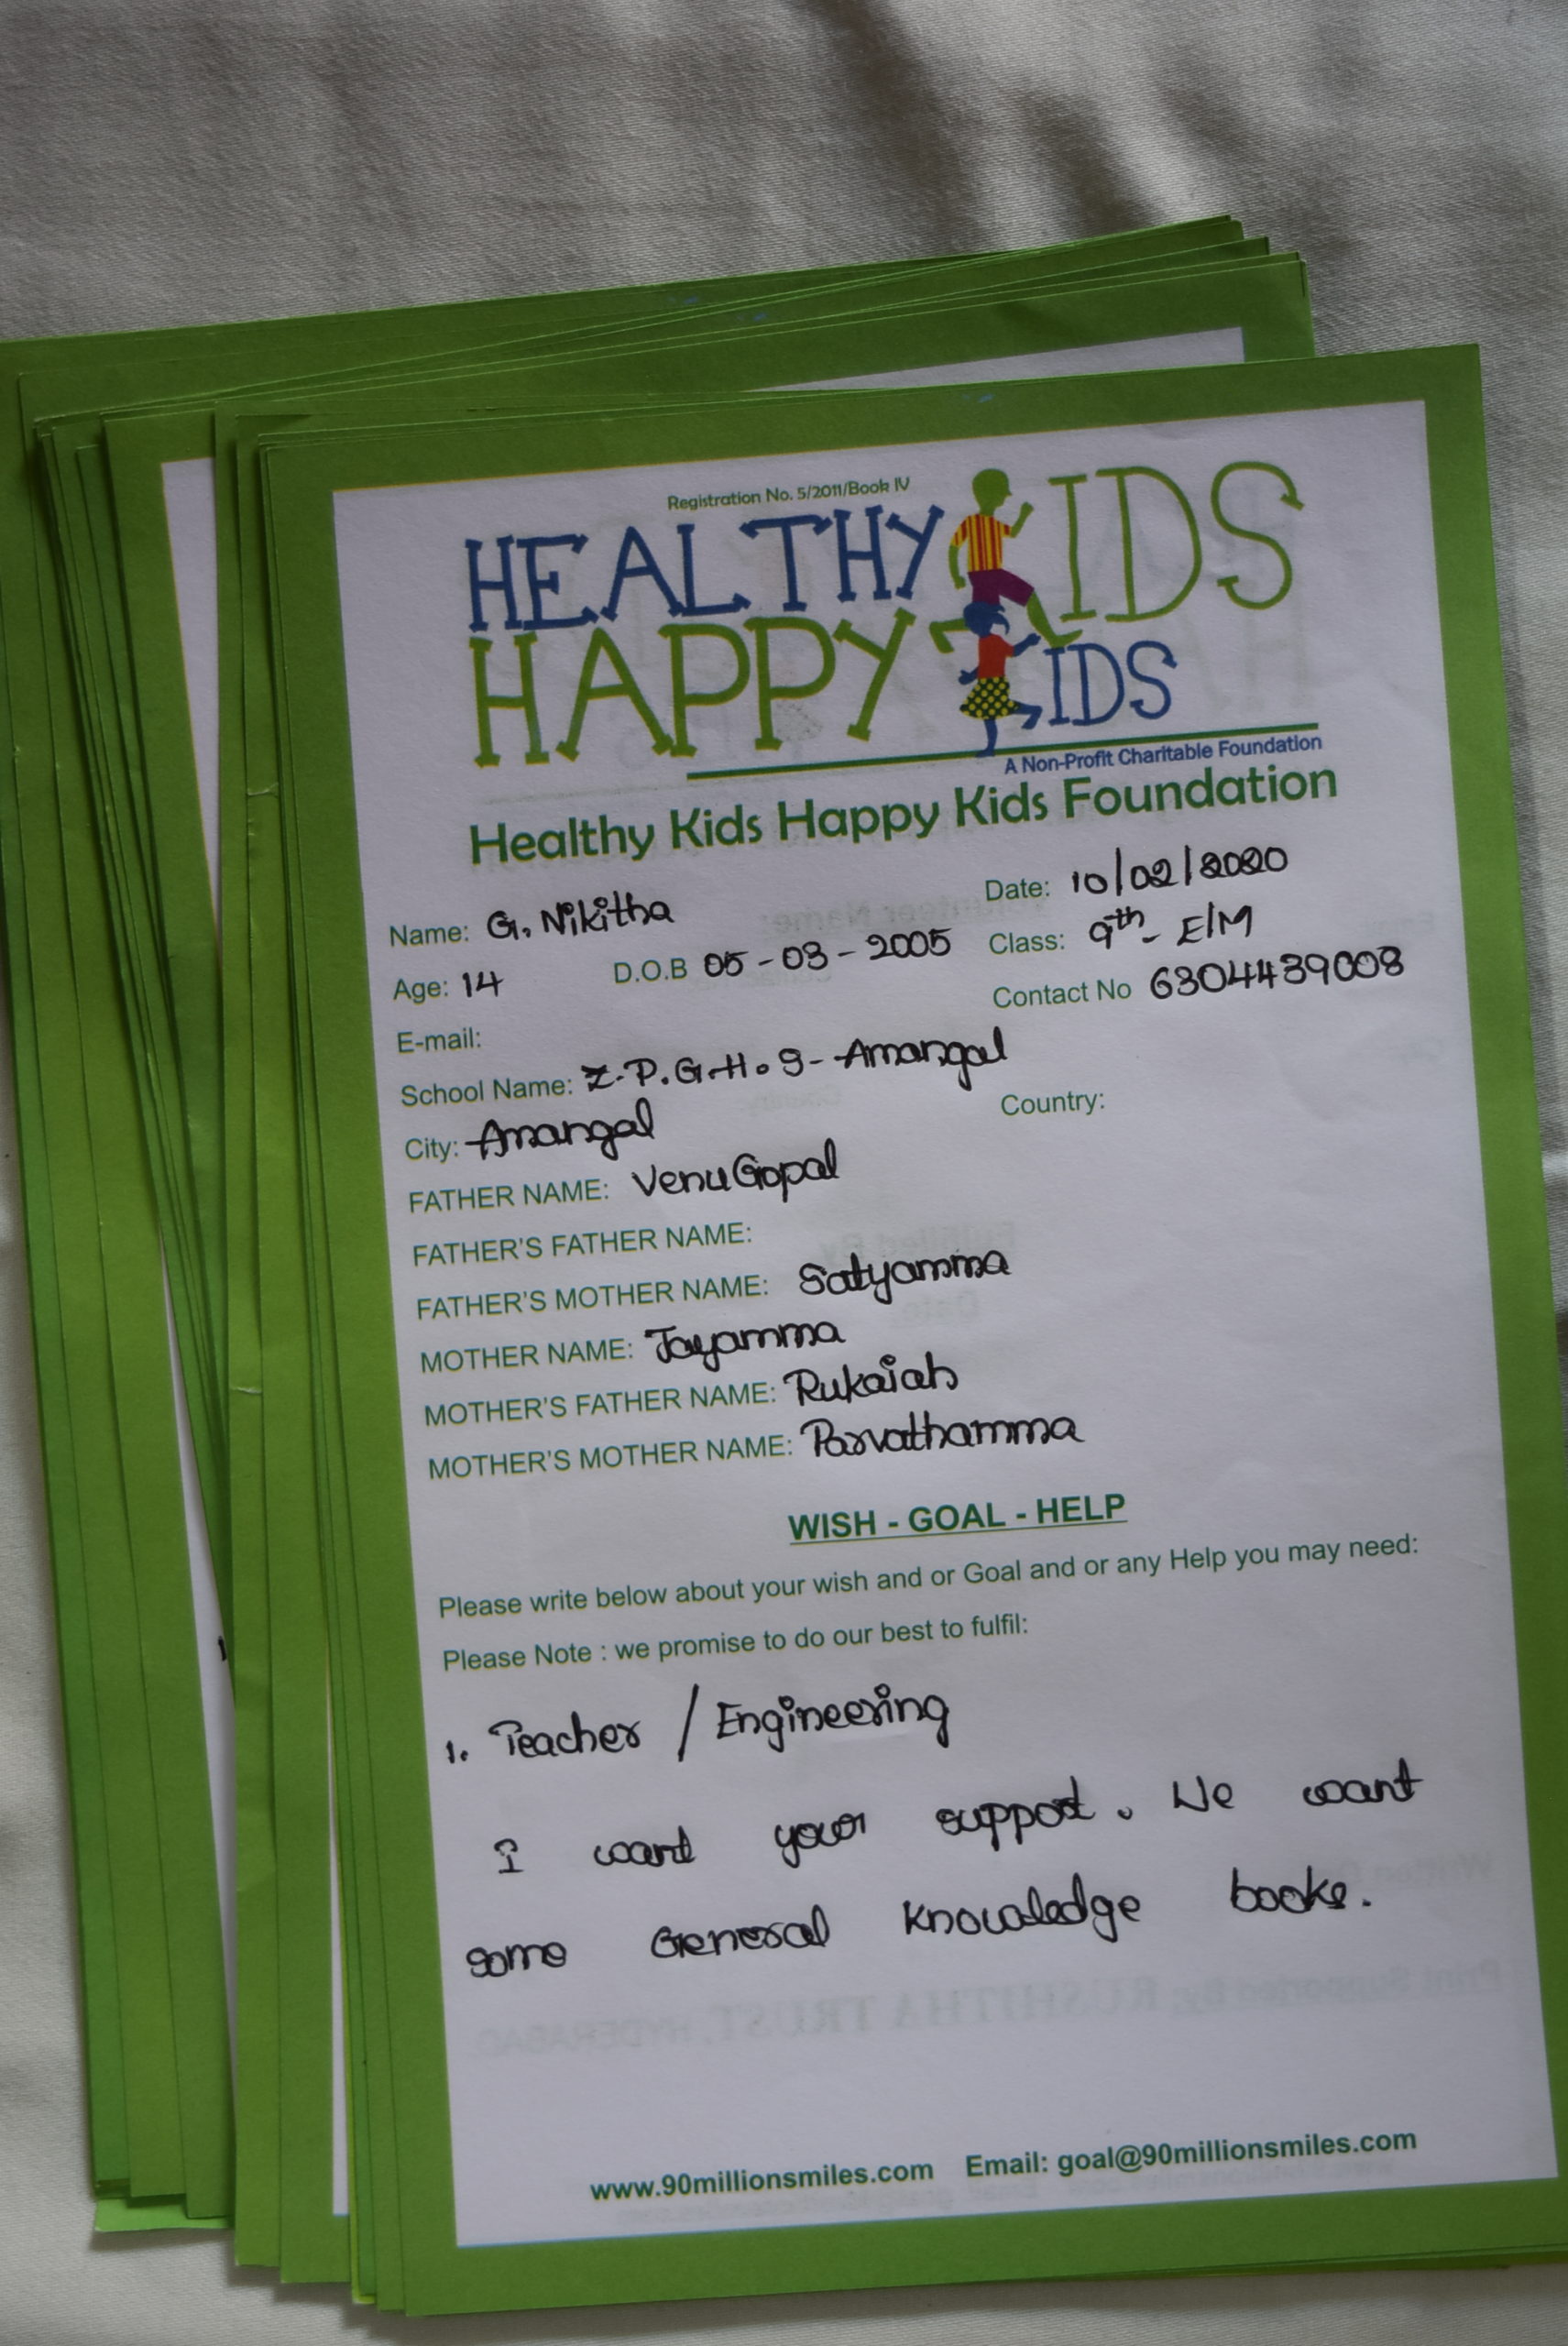 Registration No. 5/2011/Book IV
HEALTHY KIDS
HAPPY KIDS
A Non-Profit Charitable Foundation
Healthy Kids Happy Kids Foundation
Name: G. Nikitha Date: 10/02/2020
Age: 14 D.O.B 05-03-2005 Class: 9th- E/M
E-mail: Contact No 6304439008
School Name: Z.P.G.H.S- Amangal
City: Amangal Country:
FATHER NAME: VenuGopal
FATHER'S FATHER NAME:
FATHER'S MOTHER NAME: Satyamma
MOTHER NAME: Jayamma
MOTHER'S FATHER NAME: Rukaiah
MOTHER'S MOTHER NAME: Parvathamma
WISH - GOAL - HELP
Please write below about your wish and or Goal and or any Help you may need:
Please Note : we promise to do our best to fulfil:
1. Teacher / Engineering
I want your support. We want
some General Knowledge books.
www.90millionsmiles.com Email: goal@90millionsmiles.com